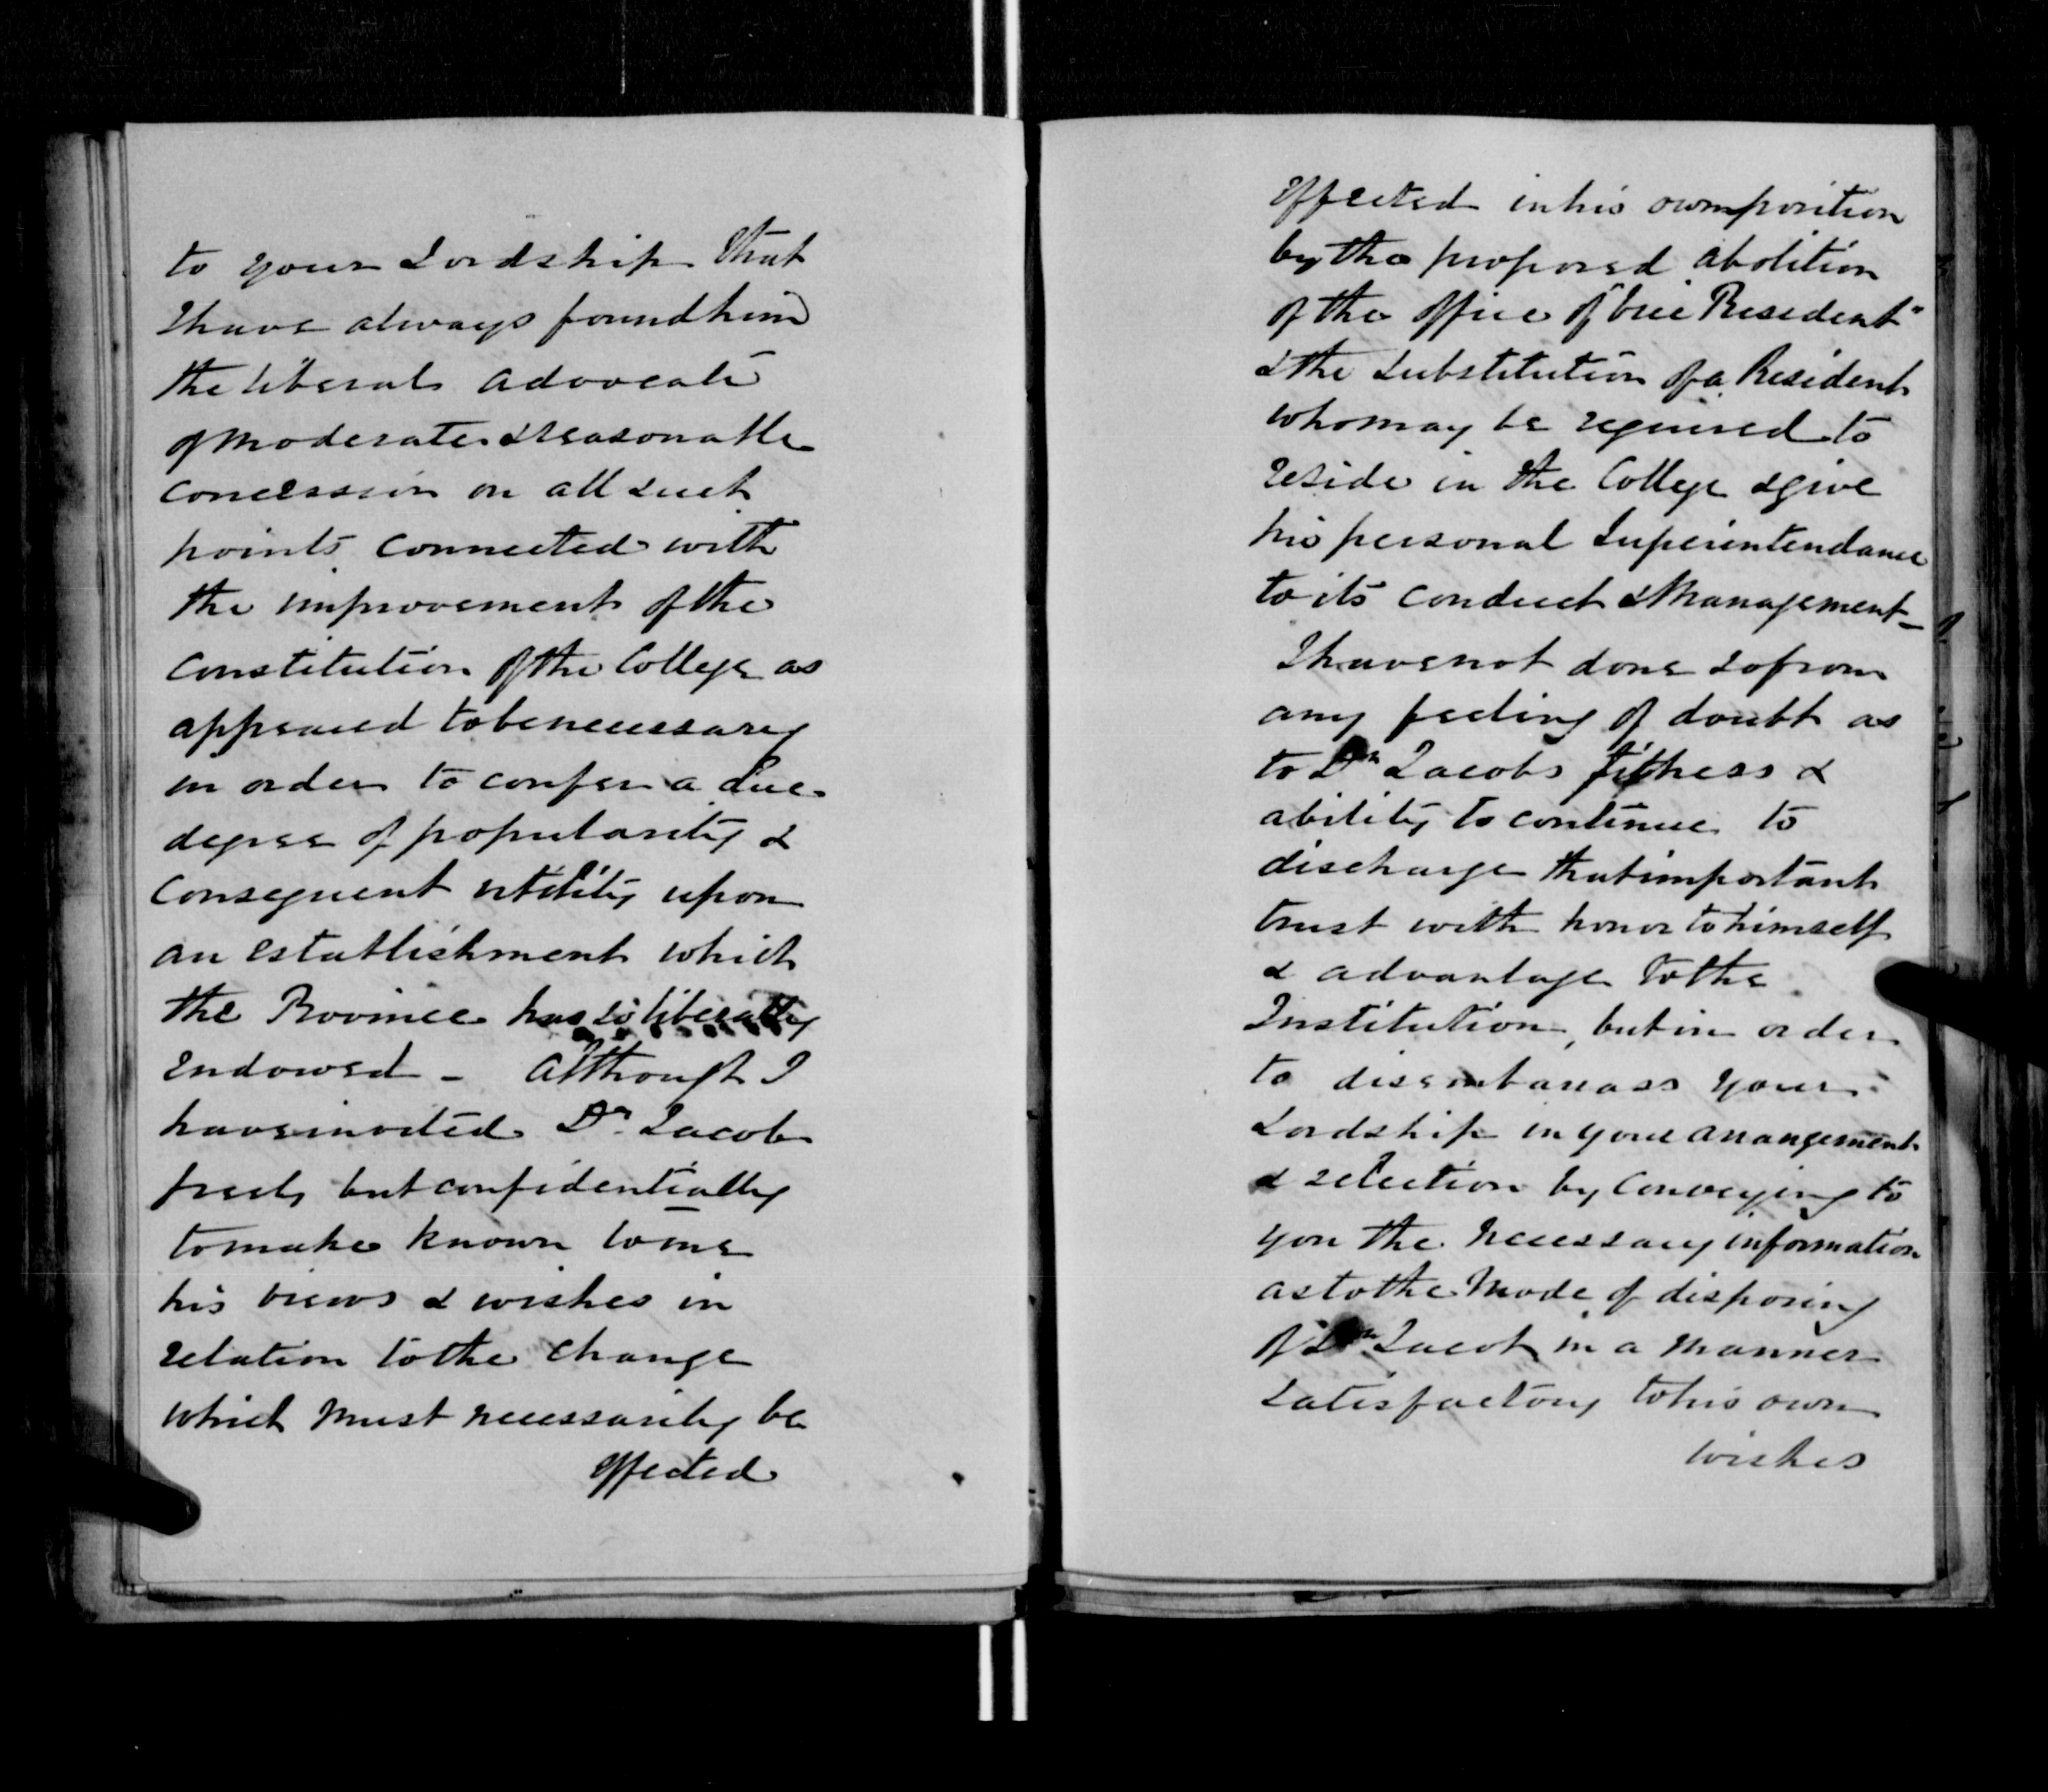 to your Lordship that
I have always found him
the liberal advocate
of moderate & reasonable
concession on all such
points connected with
the improvement of the
constitution of the College as
appeared to be necessary
in order to confer a due
degree of popularity &
consequent utility upon
an establishment which
the Province has so liberally
endowed - Although I
have invited Dr. Jacob
freely but confidentially
to make known to me
his views & wishes in
relation to the change
which must necessarily be
effected
effected in his own position
by the proposed abolition
of the office of "Vice President"
& the substitution of a President
who may be required to
reside in the College & give
his personal Superintendance
to its conduct & Management_
I have not done so from
any feeling of doubt as
to Dr Jacobs fitness &
ability to continue to
discharge that important
trust with honor to himself
& advantage to the
Institution, but in order
to disembarrass your
Lordship in your arrangements
& selection by Conveying to
you the necessary information
as to the Mode of disposing
of Dr Jacob in a manner
satisfactory to his own
wishes